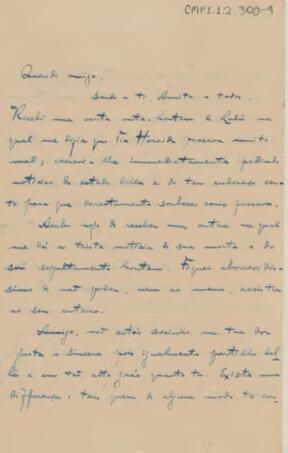 CMP1.1.2.300-1
Querido amigo,
Saúde a ti, Anita e todos.
Recebi uma carta ante-hontem do Rubi na
qual me dizia que Tia Horaida passava muito
mal; escrevi-lhe immediatamente pedindo
noticias do estado della e do teu endereço cer-
to para que directamente soubesse como passava.
Acabo hoje de receber uma outra na qual
me dá a triste noticia de sua morte e do
seu sepultamento hontem. Fiquei aborrecidis-
simo de não poder, nem ao menos, assistir
ao seu enterro.
Amigo, não estás sosinho na tua dor
justa e sincera pois igualmente partilho del-
la e em tão alto gráo quanto tu. Existe uma
differença: tens quem de algum modo te con-